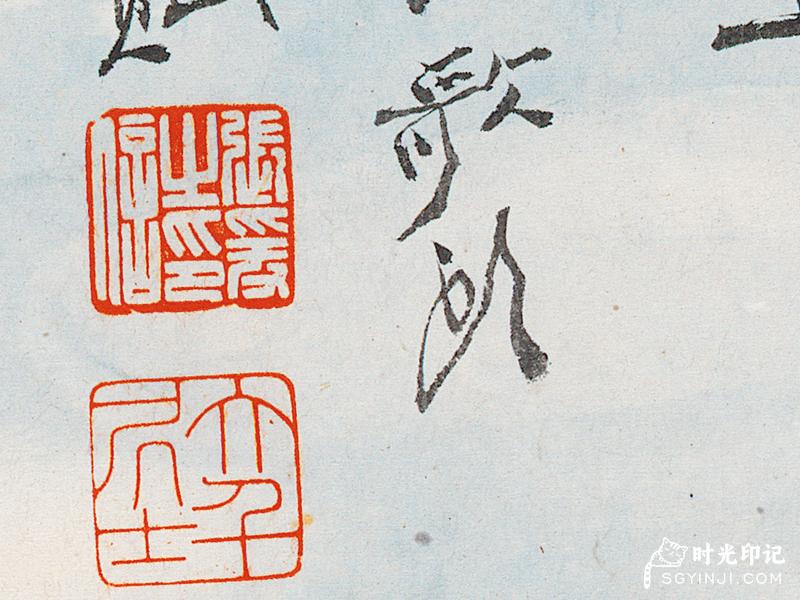 歌
張爰之印信
大千居士
时光印记
SGYINJI.COM